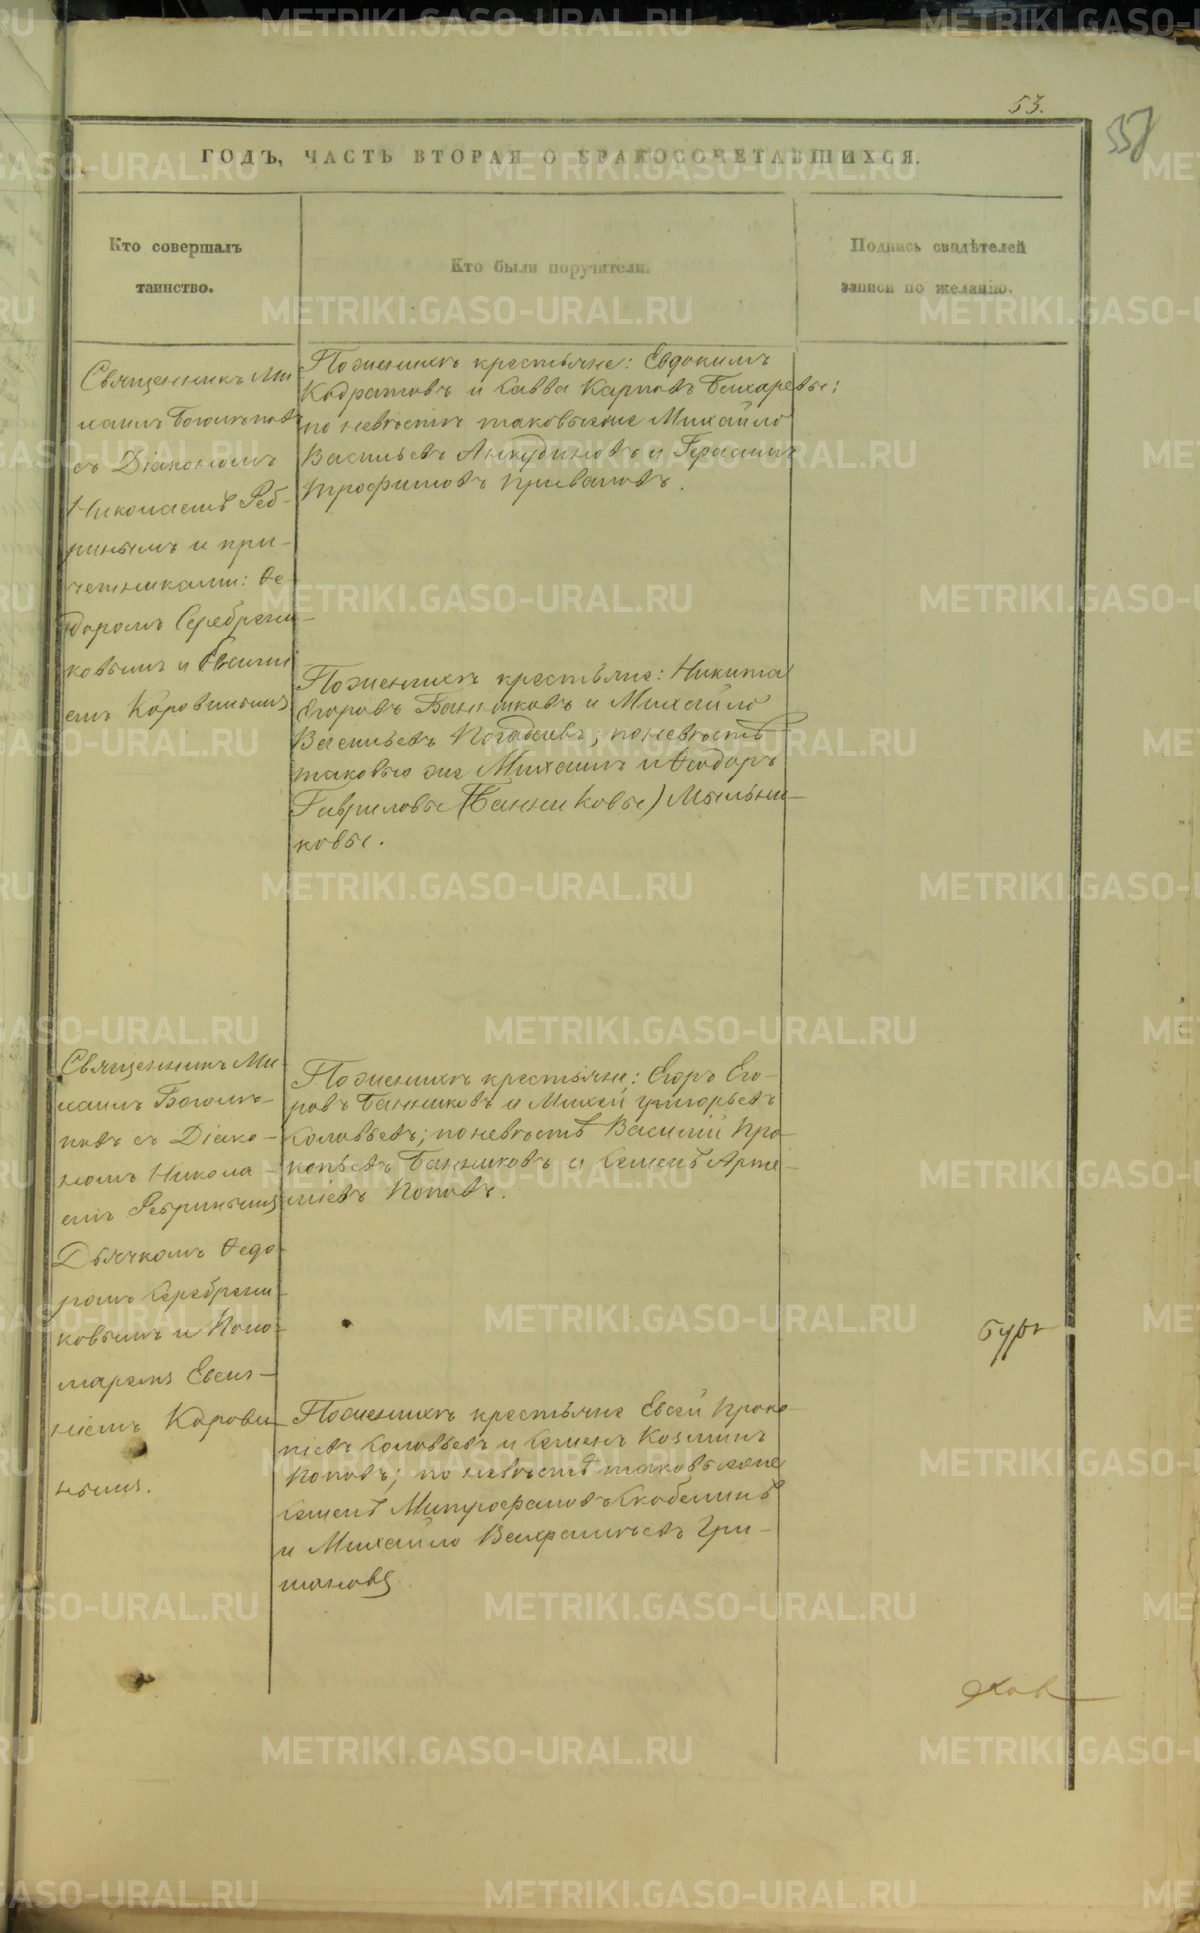 53.
558
ГОДЪ, ЧАСТЬ ВТОРАЯ О БРАКОСОЧЕТАВШИХСЯ.
Кто совершалъ
таинство.
Кто были поручители.
Подпись свидѣтелей
записи по желанію.
Священникъ Ми
хаилъ Боголѣповъ
съ Діакономъ
Николаемъ Реб-
ринымъ и при-
четниками: Ѳе-
доромъ Серебрени-
ковымъ и Евсиги
емъ Коровинымъ
По женихѣ крестьяне: Евдокимъ
Кодратовъ и Савва Карповъ Бихаревы;
по невѣстѣ таковые же Михайло
Васильевъ Анкудиновъ и Герасимъ
Трофимовъ Приваловъ.
По женихѣ крестьяне: Никита
Егоровъ Банниковъ и Михайло
Васильевъ Погадаевъ; по невѣстѣ
таковые же Михаилъ и Ѳеодоръ
Гавриловы (Банниковы) Мыльни-
ковы.
Священникъ Ми-
хаилъ Боголѣ-
повъ съ Діако-
номъ Никола-
емъ Ребринымъ
Дьячкомъ Ѳедо-
ромъ Серебрени-
ковымъ и Поно-
маремъ Евсиг-
ніемъ Корови-
нымъ.
По женихѣ крестьяне: Егоръ Его-
ровъ Банниковъ и Михей Григорьевъ
Соловьевъ; по невѣстѣ Василій Про-
копьевъ Банниковъ и Семенъ Арте-
міевъ Поповъ.
По женихѣ крестьяне Евсей Проко-
піевъ Соловьевъ и Семенъ Козминъ
Поповъ; по невѣстѣ таковые же
Семенъ Митрофановъ Скобелинъ
и Михайло Вахрамѣевъ Гри-
шановъ.
METRIKI.GASO-URAL.RU